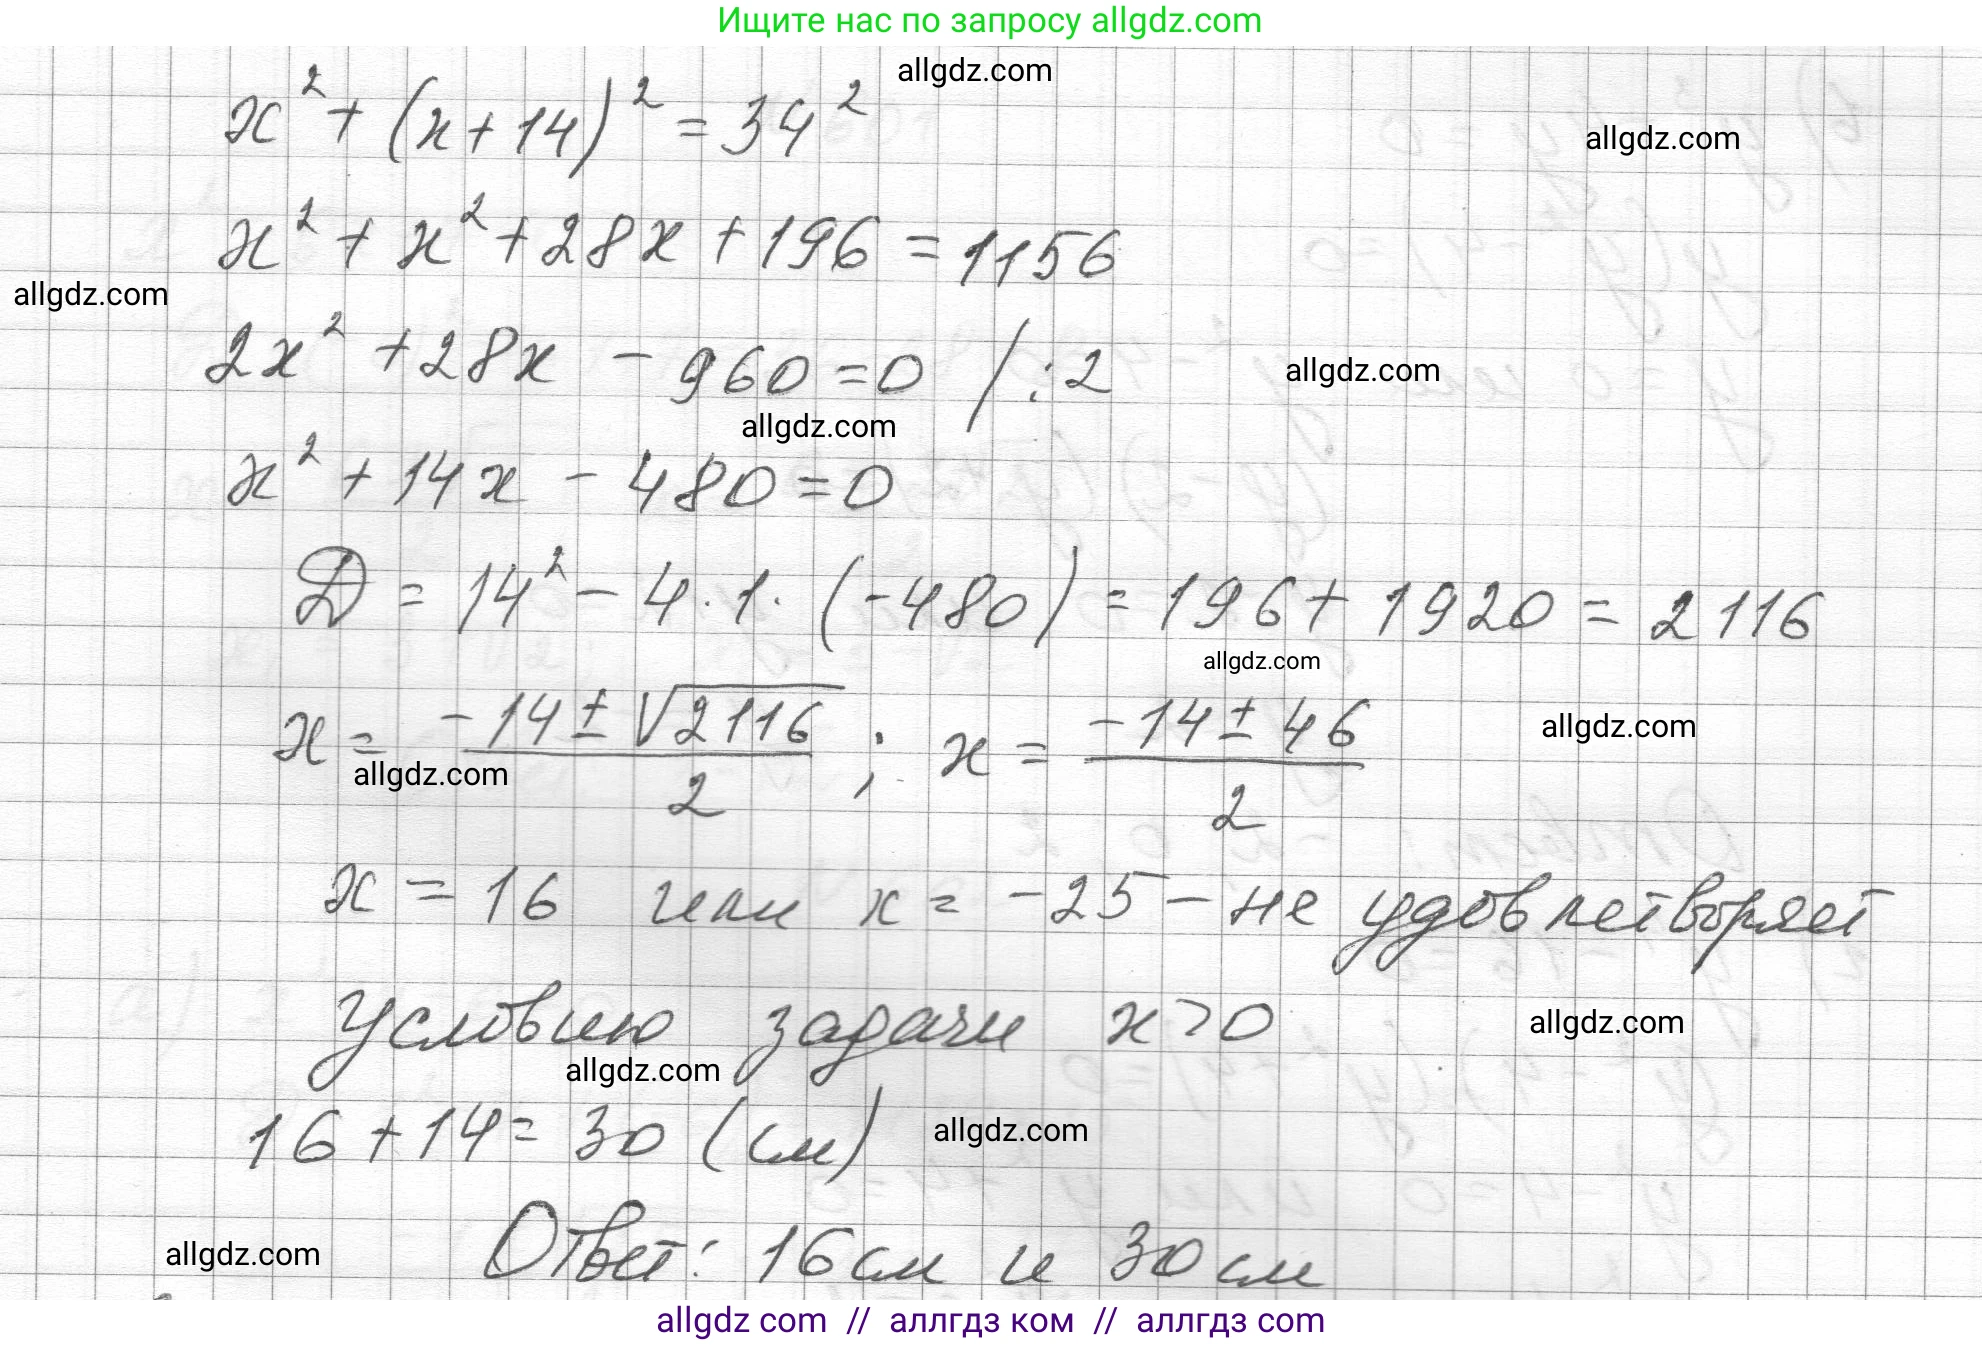 Ищите нас по запросу allgdz.com
allgdz.com
x² + (x+14)² = 34²
allgdz.com
x² + x² + 28x + 196 = 1156
allgdz.com
2x² + 28x - 960 = 0 / :2
allgdz.com
allgdz.com
x² + 14x - 480 = 0
D = 14² - 4·1·(-480) = 196 + 1920 = 2116
allgdz.com
x = (-14 ± √2116)/2 ; x = (-14 ± 46)/2
allgdz.com
allgdz.com
x = 16 или x = -25 - не удовлетворяет
условию задачи x > 0
allgdz.com
allgdz.com
16 + 14 = 30 (см)
allgdz.com
Ответ: 16 см и 30 см
allgdz.com
allgdz com // аллгдз ком // аллгдз com